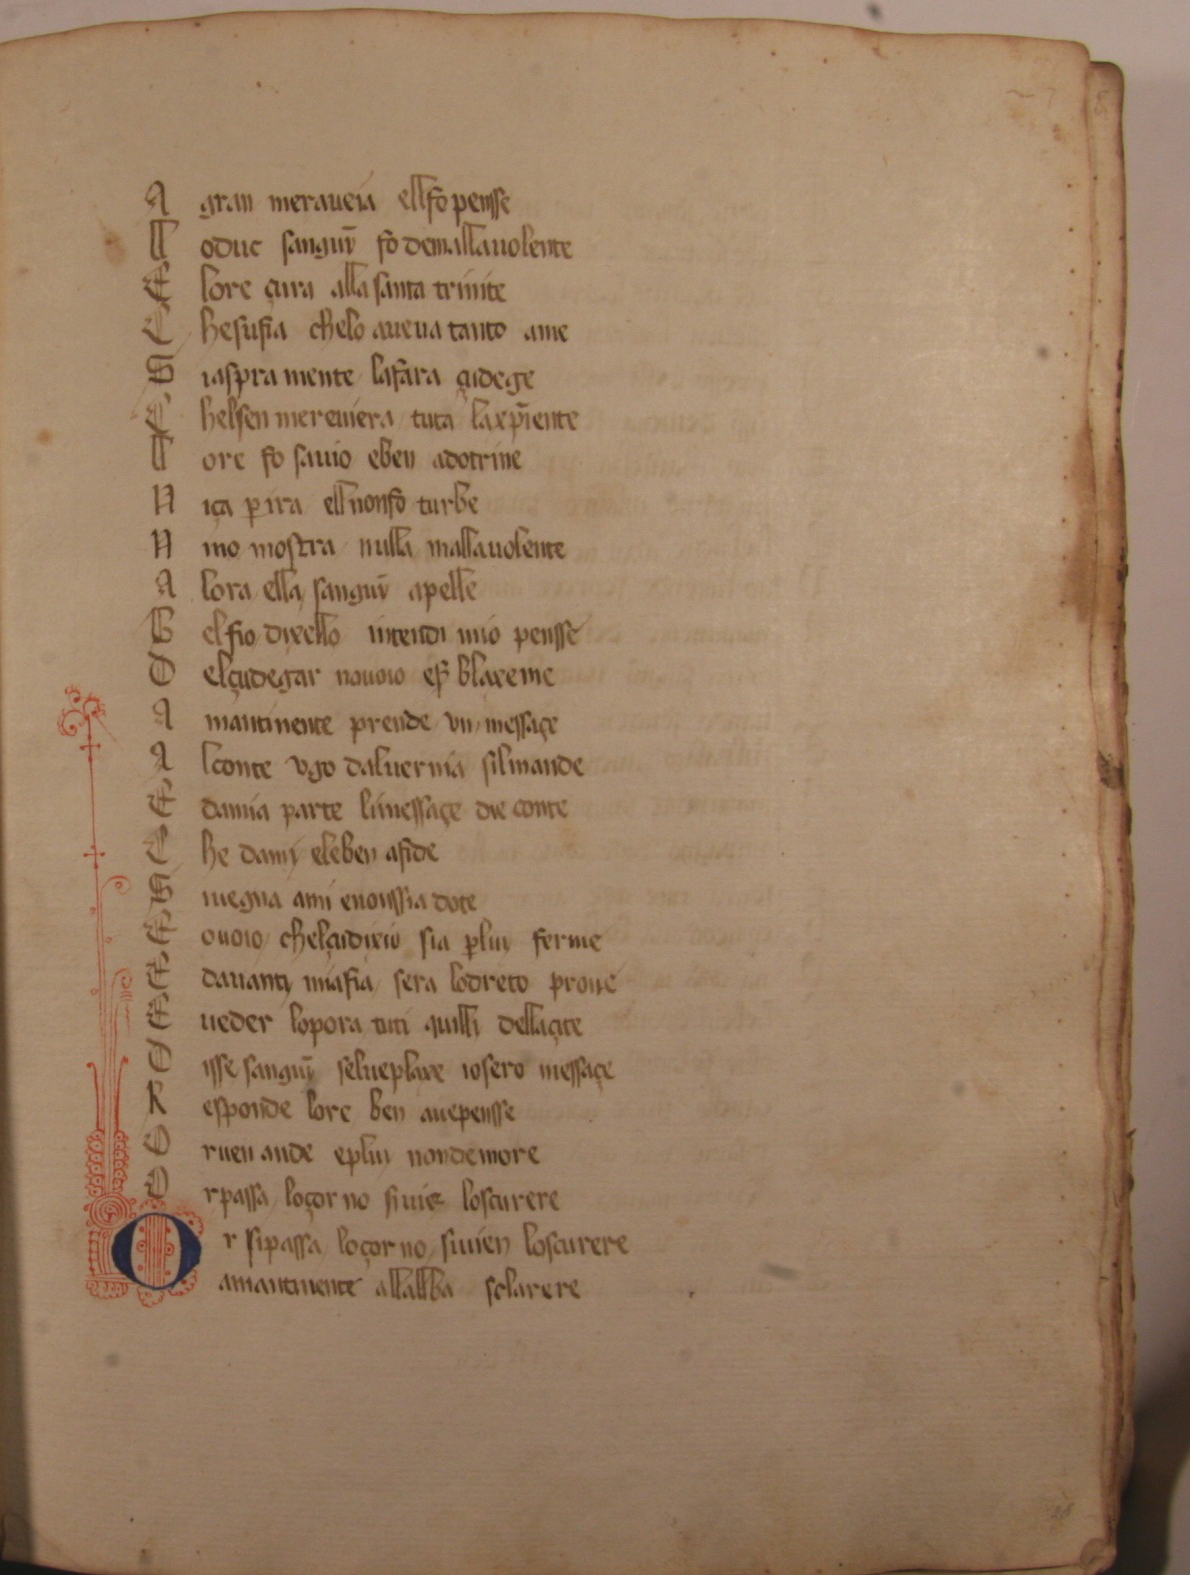 A gran meraveia ell fo pensse
Lo duc sanguī fo de mallavolente
E lore çura alla santa trinite
C he sufia chelo aveva tanto ame
S i aspra mente la fara çidege
C helsen mereviera tuta la xp̄iente
L ore fo savio e ben adotrine
N iça p ira ell non fo turbe
N ino mostra nulla mallavolente
A lora ella sanguī apelle
B el fio dixello intendi mio pensse
D el çudegar no voio eser blaxeme
A mantinente prende un messaçe
A l conte Ugo dalvernia sil mande
E da mia parte li messaçe die conte
C he da my el e ben afide
S i vegna a mi e no issia dote
E o voio chel çidixio sia p luy ferme
E davanty mia fia sera lo dreto prove
E veder lo pora tuti quilli dellaçite
D isse sanguī sel ve plaxe io sero messaçe
R esponde lore ben ave pensse
O r ven ande e pluy non demore
O r passa lo çorno si vien lo scurere
O r si passa lo çorno si vien lo scurere
a mantinente all allba sclarere
28